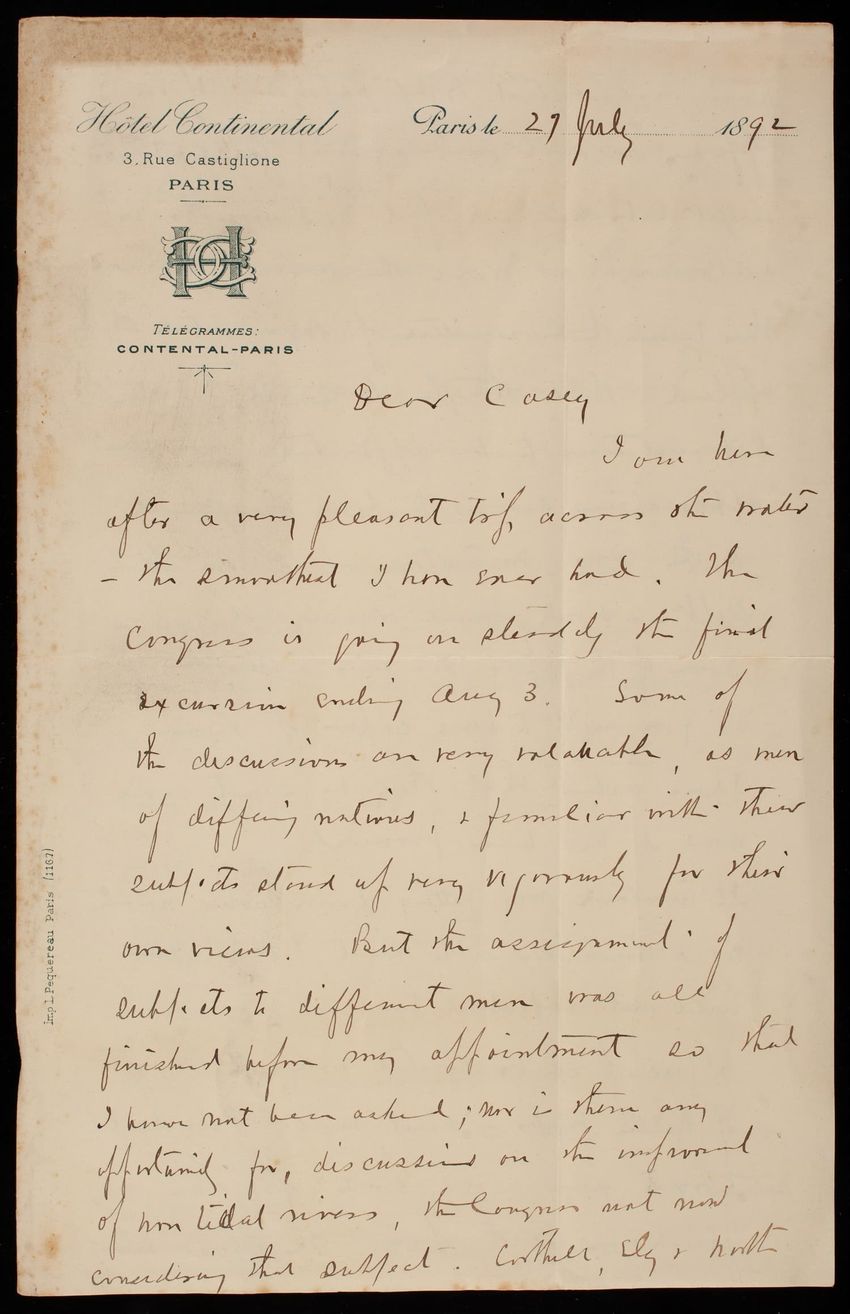 Hôtel Continental
3, Rue Castiglione
PARIS
HC
TÉLÉGRAMMES:
CONTENTAL-PARIS
Paris le 27 July 1892
Dear Casey
I am here
after a very pleasant trip across the water
- the smoothest I have ever had. The
Congress is going on steadily the final
excursion ending Aug 3. Some of
the discussions are very valuable, as men
of differing nations, & familiar with their
subjects stand up very vigorously for their
own views. But the assignment of
subjects to different men was all
finished before my appointment so that
I have not been asked; nor is there any
opportunity for, discussions on the improvement
of non tidal rivers, the Congress not now
considering that subject. Corthell, Ely & North
Imp L Pequereau Paris (1167)